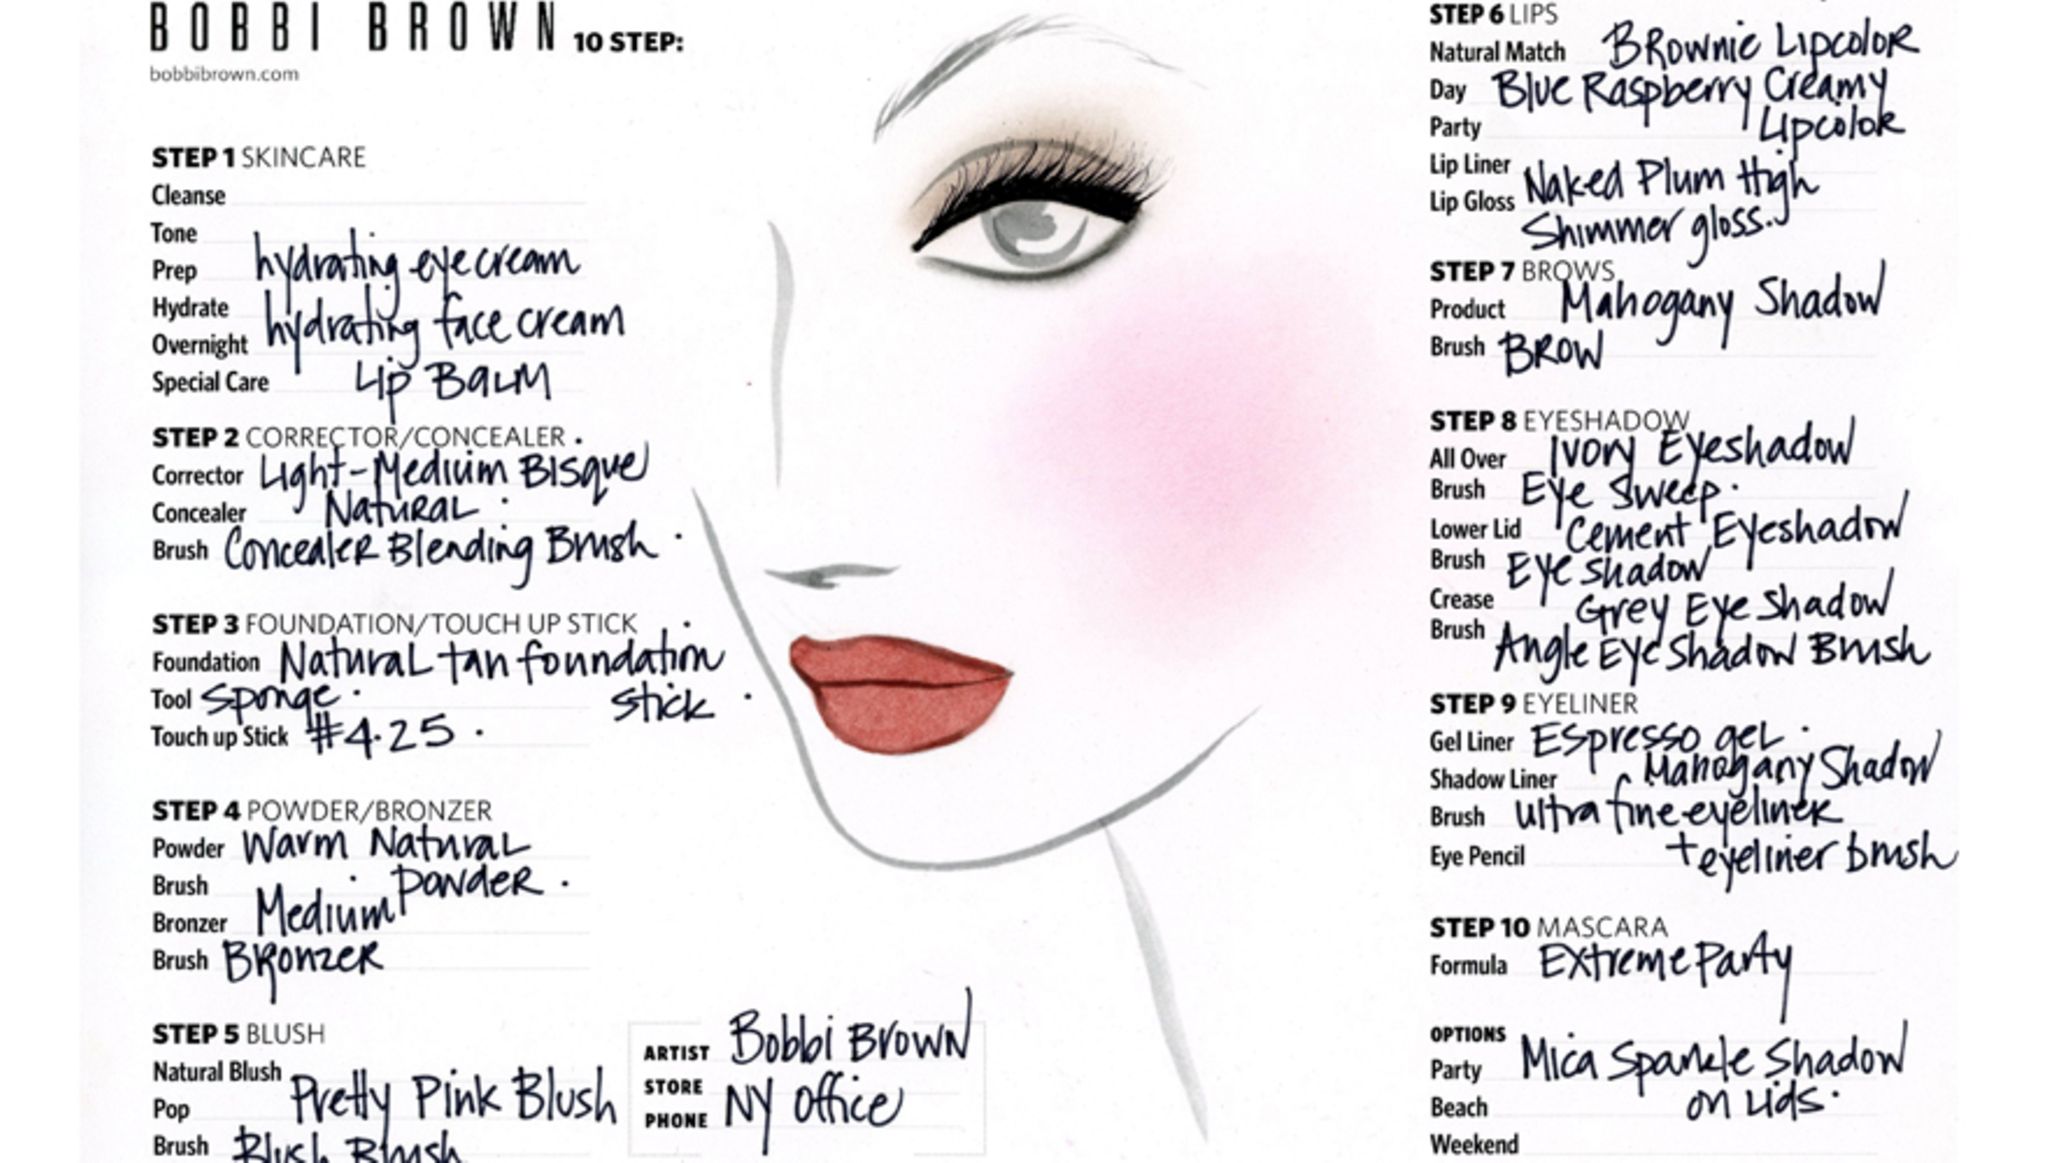 BOBBI BROWN 10 STEP:
bobbibrown.com
STEP 1 SKINCARE
Cleanse
Tone
Prep hydrating eye cream
Hydrate
Overnight hydrating face cream
Special Care Lip Balm
STEP 2 CORRECTOR/CONCEALER
Corrector Light-Medium Bisque
Concealer Natural
Brush Concealer Blending Brush
STEP 3 FOUNDATION/TOUCH UP STICK
Foundation Natural tan foundation
Tool Sponge. stick
Touch up Stick #4.25
STEP 4 POWDER/BRONZER
Powder Warm Natural
Brush powder.
Bronzer Medium
Brush Bronzer
STEP 5 BLUSH
Natural Blush
Pop Pretty Pink Blush
Brush Blush Brush
ARTIST Bobbi Brown
STORE
PHONE NY Office
STEP 6 LIPS
Natural Match Brownie Lipcolor
Day Blue Raspberry Creamy
Party Lipcolor
Lip Liner
Lip Gloss Naked Plum High
Shimmer gloss.
STEP 7 BROWS
Product Mahogany Shadow
Brush Brow
STEP 8 EYESHADOW
All Over Ivory Eyeshadow
Brush Eye Sweep.
Lower Lid Cement Eyeshadow
Brush Eye shadow
Crease Grey Eye Shadow
Brush Angle Eye Shadow Brush
STEP 9 EYELINER
Gel Liner Espresso gel.
Shadow Liner Mahogany Shadow
Brush ultra fine eyeliner
Eye Pencil + eyeliner brush
STEP 10 MASCARA
Formula Extreme Party
OPTIONS
Party Mica Sparkle Shadow
Beach on lids.
Weekend